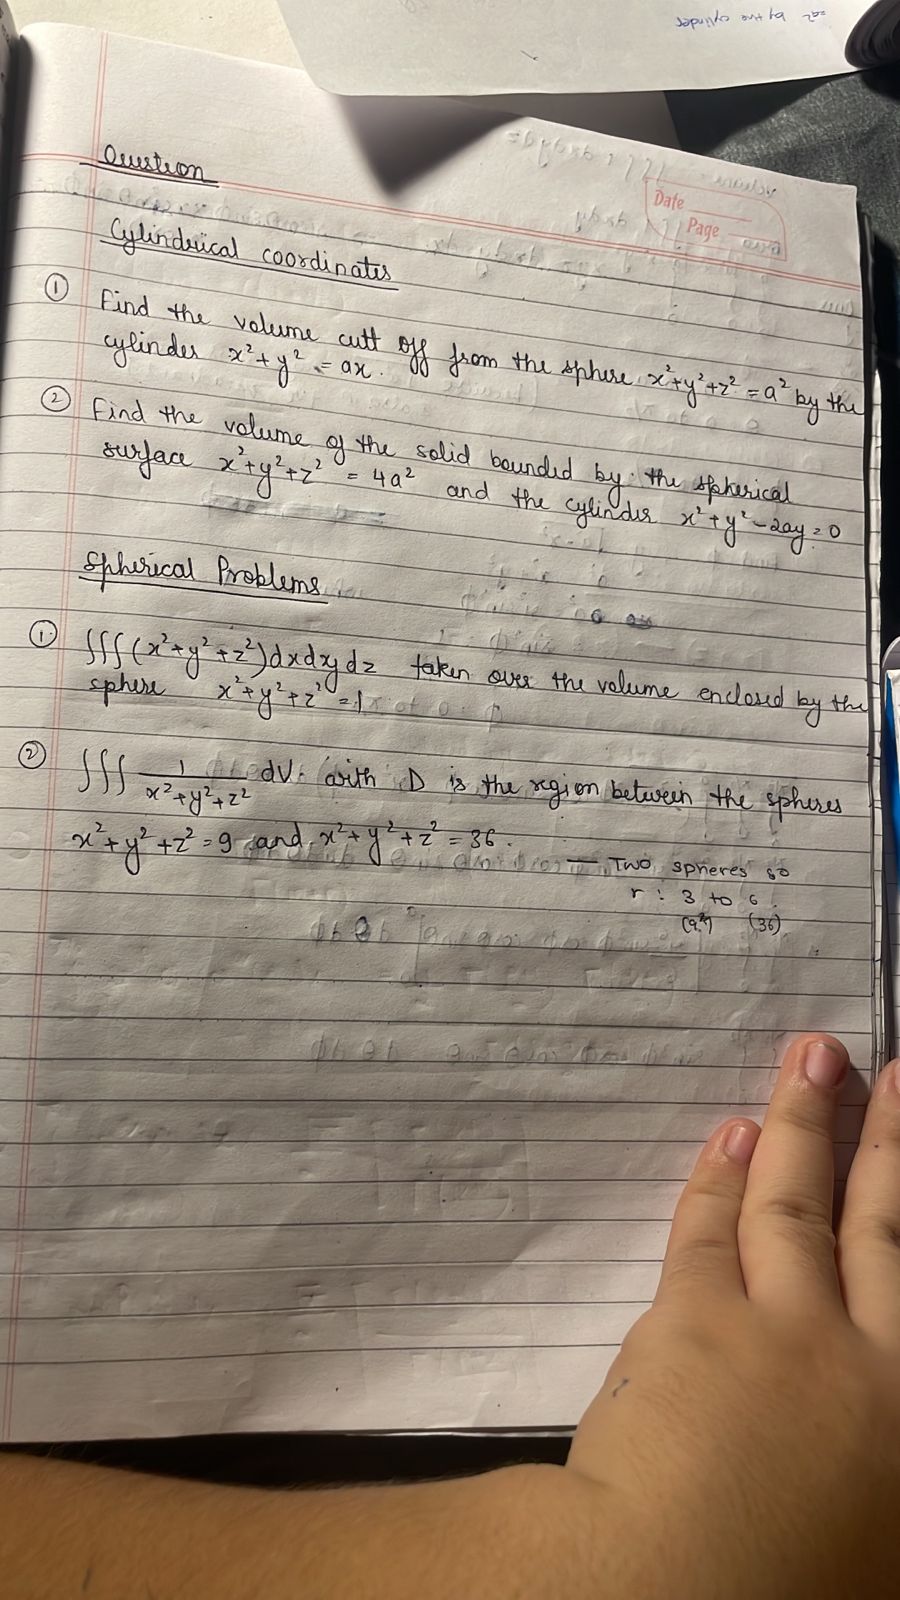 =a² by the cylinder
Question
Date
Page
Cylinderical coordinates
① Find the volume cutt off from the sphere x²+y²+z² = a² by the
cylinder x²+y² = ax.
② Find the volume of the solid bounded by the spherical
surface x²+y²+z² = 4a² and the cylinder x²+y²-2ay=0
Spherical Problems
① ∫∫∫(x²+y²+z²)dxdydz taken over the volume enclosed by the
sphere x²+y²+z² = 1
② ∫∫∫ 1/(x²+y²+z²) dV. with D is the region between the spheres
x²+y²+z²=9 and x²+y²+z²=36.
— Two spheres so
r : 3 to 6.
(36)